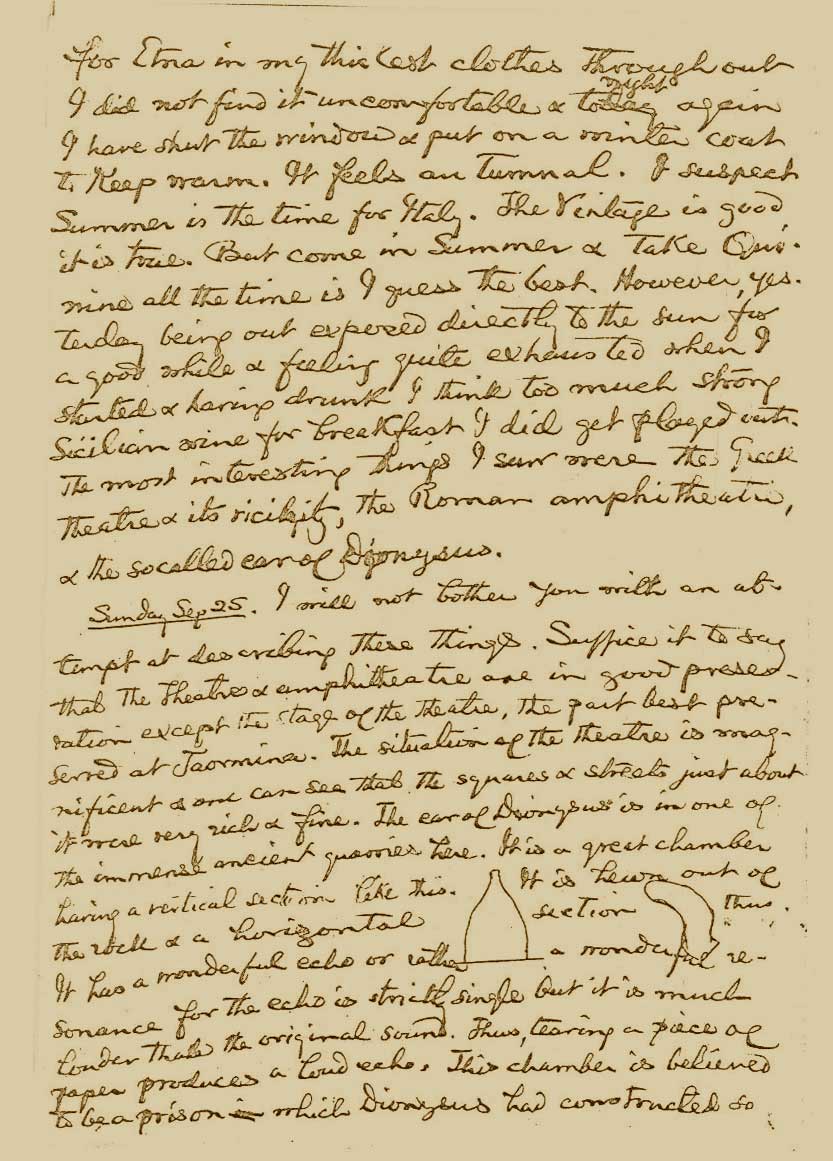 for Etna in my thickest clothes throughout
I did not find it uncomfortable & today night again
I have shut the window & put on a winter coat
to keep warm. It feels autumnal. I suspect
Summer is the time for Italy. The Vintage is good
it is true. But come in Summer & take Qui-
nine all the time is I guess the best. However, yes-
terday being out exposed directly to the sun for
a good while & feeling quite exhausted when I
started & having drunk I think too much strong
Sicilian wine for breakfast I did get played out.
The most interesting things I saw were the Greek
theatre & its vicinity, the Roman amphitheatre,
& the socalled ear of Dionysus.
Sunday Sep 25. I will not bother you with an at-
tempt at describing these things. Suffice it to say
that the theatre & amphitheatre are in good preser-
vation except the stage of the theatre, the part best pre-
served at Taormina. The situation of the theatre is mag-
nificent & one can see that the squares & streets just about
it were very rich & fine. The ear of Dionysus is in one of
the immense ancient quarries here. It is a great chamber
having a vertical section like this. It is hewn out of
the rock & a horizontal section thus.
It has a wonderful echo or rather a wonderful re-
sonance for the echo is strictly single but it is much
louder than the original sound. Thus, tearing a piece of
paper produces a loud echo. This chamber is believed
to be a prison in which Dionysus had constructed so